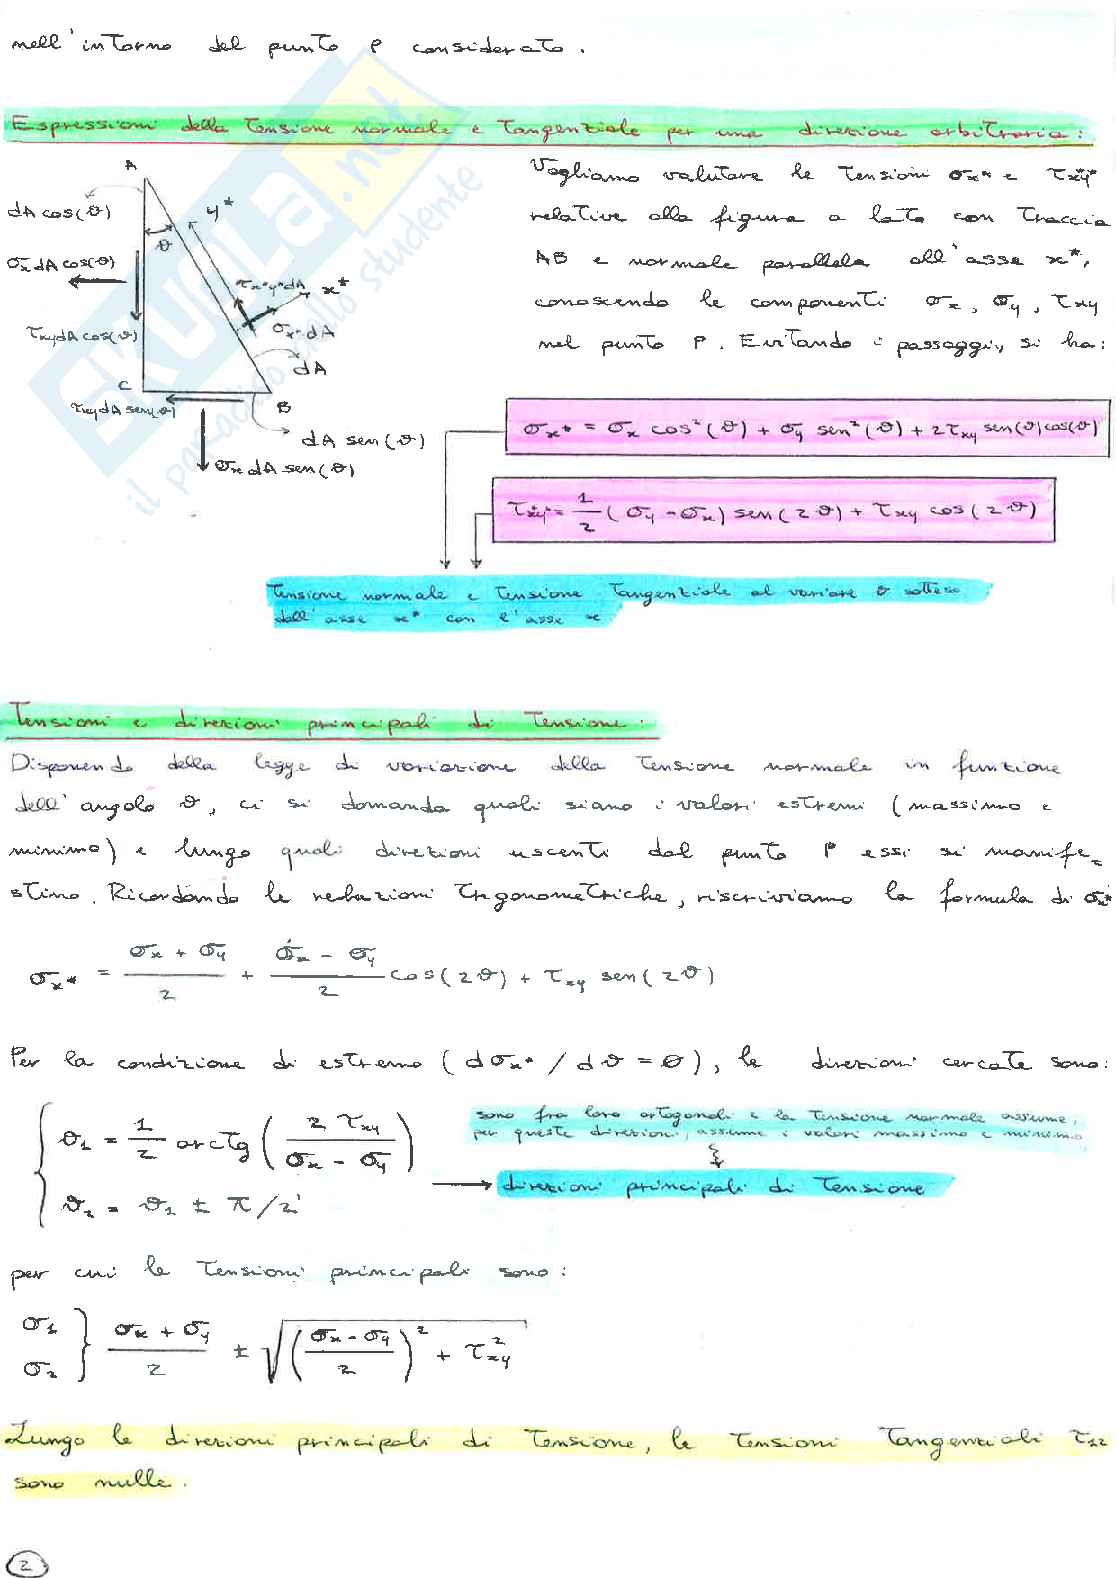 nell'intorno del punto P considerato.
Espressioni della tensione normale e tangenziale per una direzione arbitraria:
A
dA cos(ϑ)
y*
ϑ
σx dA cos(ϑ)
τx*y* dA
x*
σx* dA
τxy dA cos(ϑ)
dA
C
τxy dA sen(ϑ)
B
dA sen(ϑ)
σx dA sen(ϑ)
Vogliamo valutare le tensioni σx* e τx*y*
relative alla figura a lato con traccia
AB e normale parallela all'asse x*,
conoscendo le componenti σx, σy, τxy
nel punto P. Evitando i passaggi, si ha:
σx* = σx cos²(ϑ) + σy sen²(ϑ) + 2τxy sen(ϑ)cos(ϑ)
τx*y* = 1/2 (σy - σx) sen(2ϑ) + τxy cos(2ϑ)
tensione normale e tensione tangenziale al variare ϑ sotteso
dall'asse x* con l'asse x
Tensioni e direzioni principali di tensione.
Disponendo della legge di variazione della tensione normale in funzione
dell'angolo ϑ, ci si domanda quali siano i valori estremi (massimo e
minimo) e lungo quali direzioni uscenti dal punto P essi si manife=
stino. Ricordando le relazioni trigonometriche, riscriviamo la formula di σx*
σx* = (σx + σy)/2 + (σx - σy)/2 cos(2ϑ) + τxy sen(2ϑ)
Per la condizione di estremo (dσx*/dϑ = 0), le direzioni cercate sono:
ϑ1 = 1/2 arctg (2 τxy / (σx - σy))
ϑ2 = ϑ1 ± π/2
sono fra loro ortogonali e la tensione normale assume,
per queste direzioni, assume i valori massimo e minimo
direzioni principali di tensione
per cui le tensioni principali sono:
σ1 σ2 } (σx + σy)/2 ± √(((σx - σy)/2)² + τxy²)
Lungo le direzioni principali di tensione, le tensioni tangenziali τ12
sono nulle.
2
SKUOLA.net
il paradiso dello studente